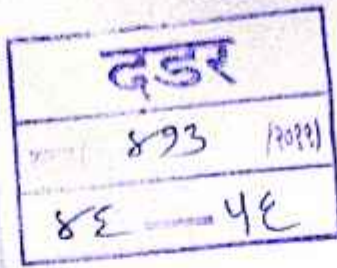 दडर
४१३ /२०११)
४६ ५६